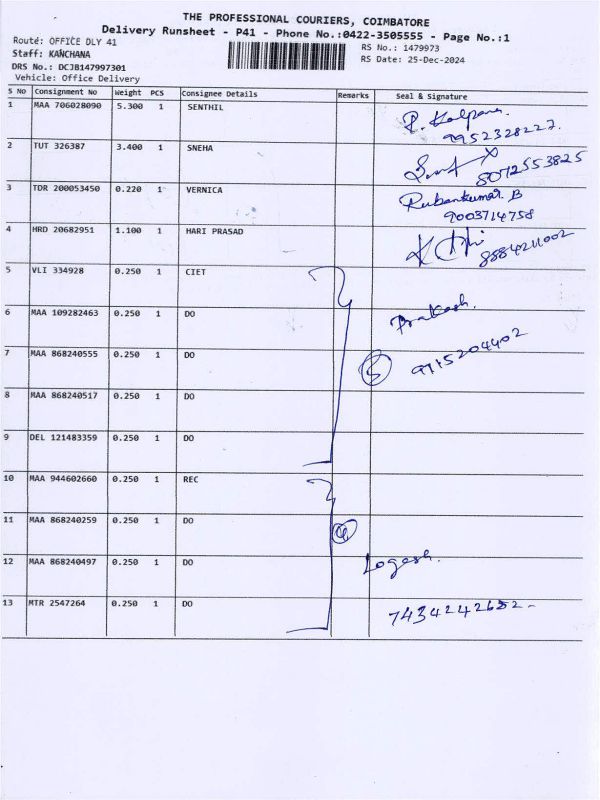 THE PROFESSIONAL COURIERS, COIMBATORE
Delivery Runsheet - P41 - Phone No.:0422-3505555 - Page No.:1
Route: OFFICE DLY 41
Staff: KANCHANA
DRS No.: DCJB147997301
Vehicle: Office Delivery
RS No.: 1479973
RS Date: 25-Dec-2024
S No Consignment No Weight PCS Consignee Details Remarks Seal & Signature
1 MAA 706028090 5.300 1 SENTHIL R. Kalpana
9952328227.
2 TUT 326387 3.400 1 SNEHA
8072553825
3 TDR 200053450 0.220 1 VERNICA Rubankumar B
9003714758
4 HRD 20682951 1.100 1 HARI PRASAD
8884211002
5 VLI 334928 0.250 1 CIET
6 MAA 109282463 0.250 1 DO Prakash.
7 MAA 868240555 0.250 1 DO 5 9715204402
8 MAA 868240517 0.250 1 DO
9 DEL 121483359 0.250 1 DO
10 MAA 944602660 0.250 1 REC
11 MAA 868240259 0.250 1 DO 4
12 MAA 868240497 0.250 1 DO Logesh.
13 MTR 2547264 0.250 1 DO